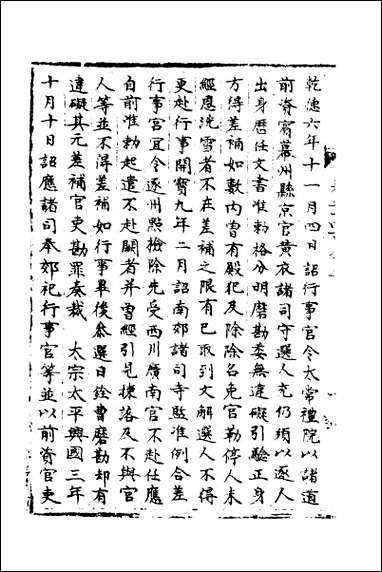 乾德六年十一月四日詔行事官令太常禮院以諸道
前資賓幕州縣京官黄衣諸司守選人充仍須以逐人
出身歷任文書准勅格分明磨勘委無違礙引驗正身
方得差補如數内曾有殿犯及除名免官勒停人未
經應洗雪者不在差補之限有已取到文解選人不得
更赴行事開寶九年二月詔南郊諸司寺監准例合差
行事官宜令逐州㸃檢除先受西川廣南官不赴任應
自前准勅起遣不赴闕者并曾經引見揀落及不與官
人等並不得差補如行事畢後叅選日銓曹磨勘却有
違礙其元差補官吏勘罪奏裁　太宗太平興國三年
十月十日詔應諸司奉郊祀行事官等並以前資官吏